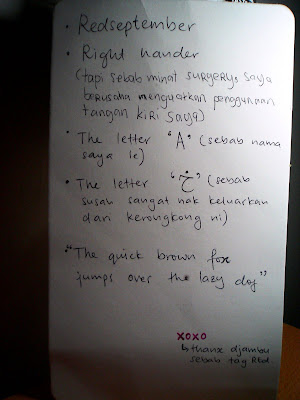 • Redseptember
• Right hander
(tapi sebab minat surgery, saya
berusaha menguatkan penggunaan
tangan kiri saya)
• The letter "A" (sebab nama
saya le)
• The letter "خ" (sebab
susah sangat nak keluarkan
dari kerongkong ni)
• "The quick brown fox
jumps over the lazy dog"
xoxo
↳ thanx djambu
sebab tag Red